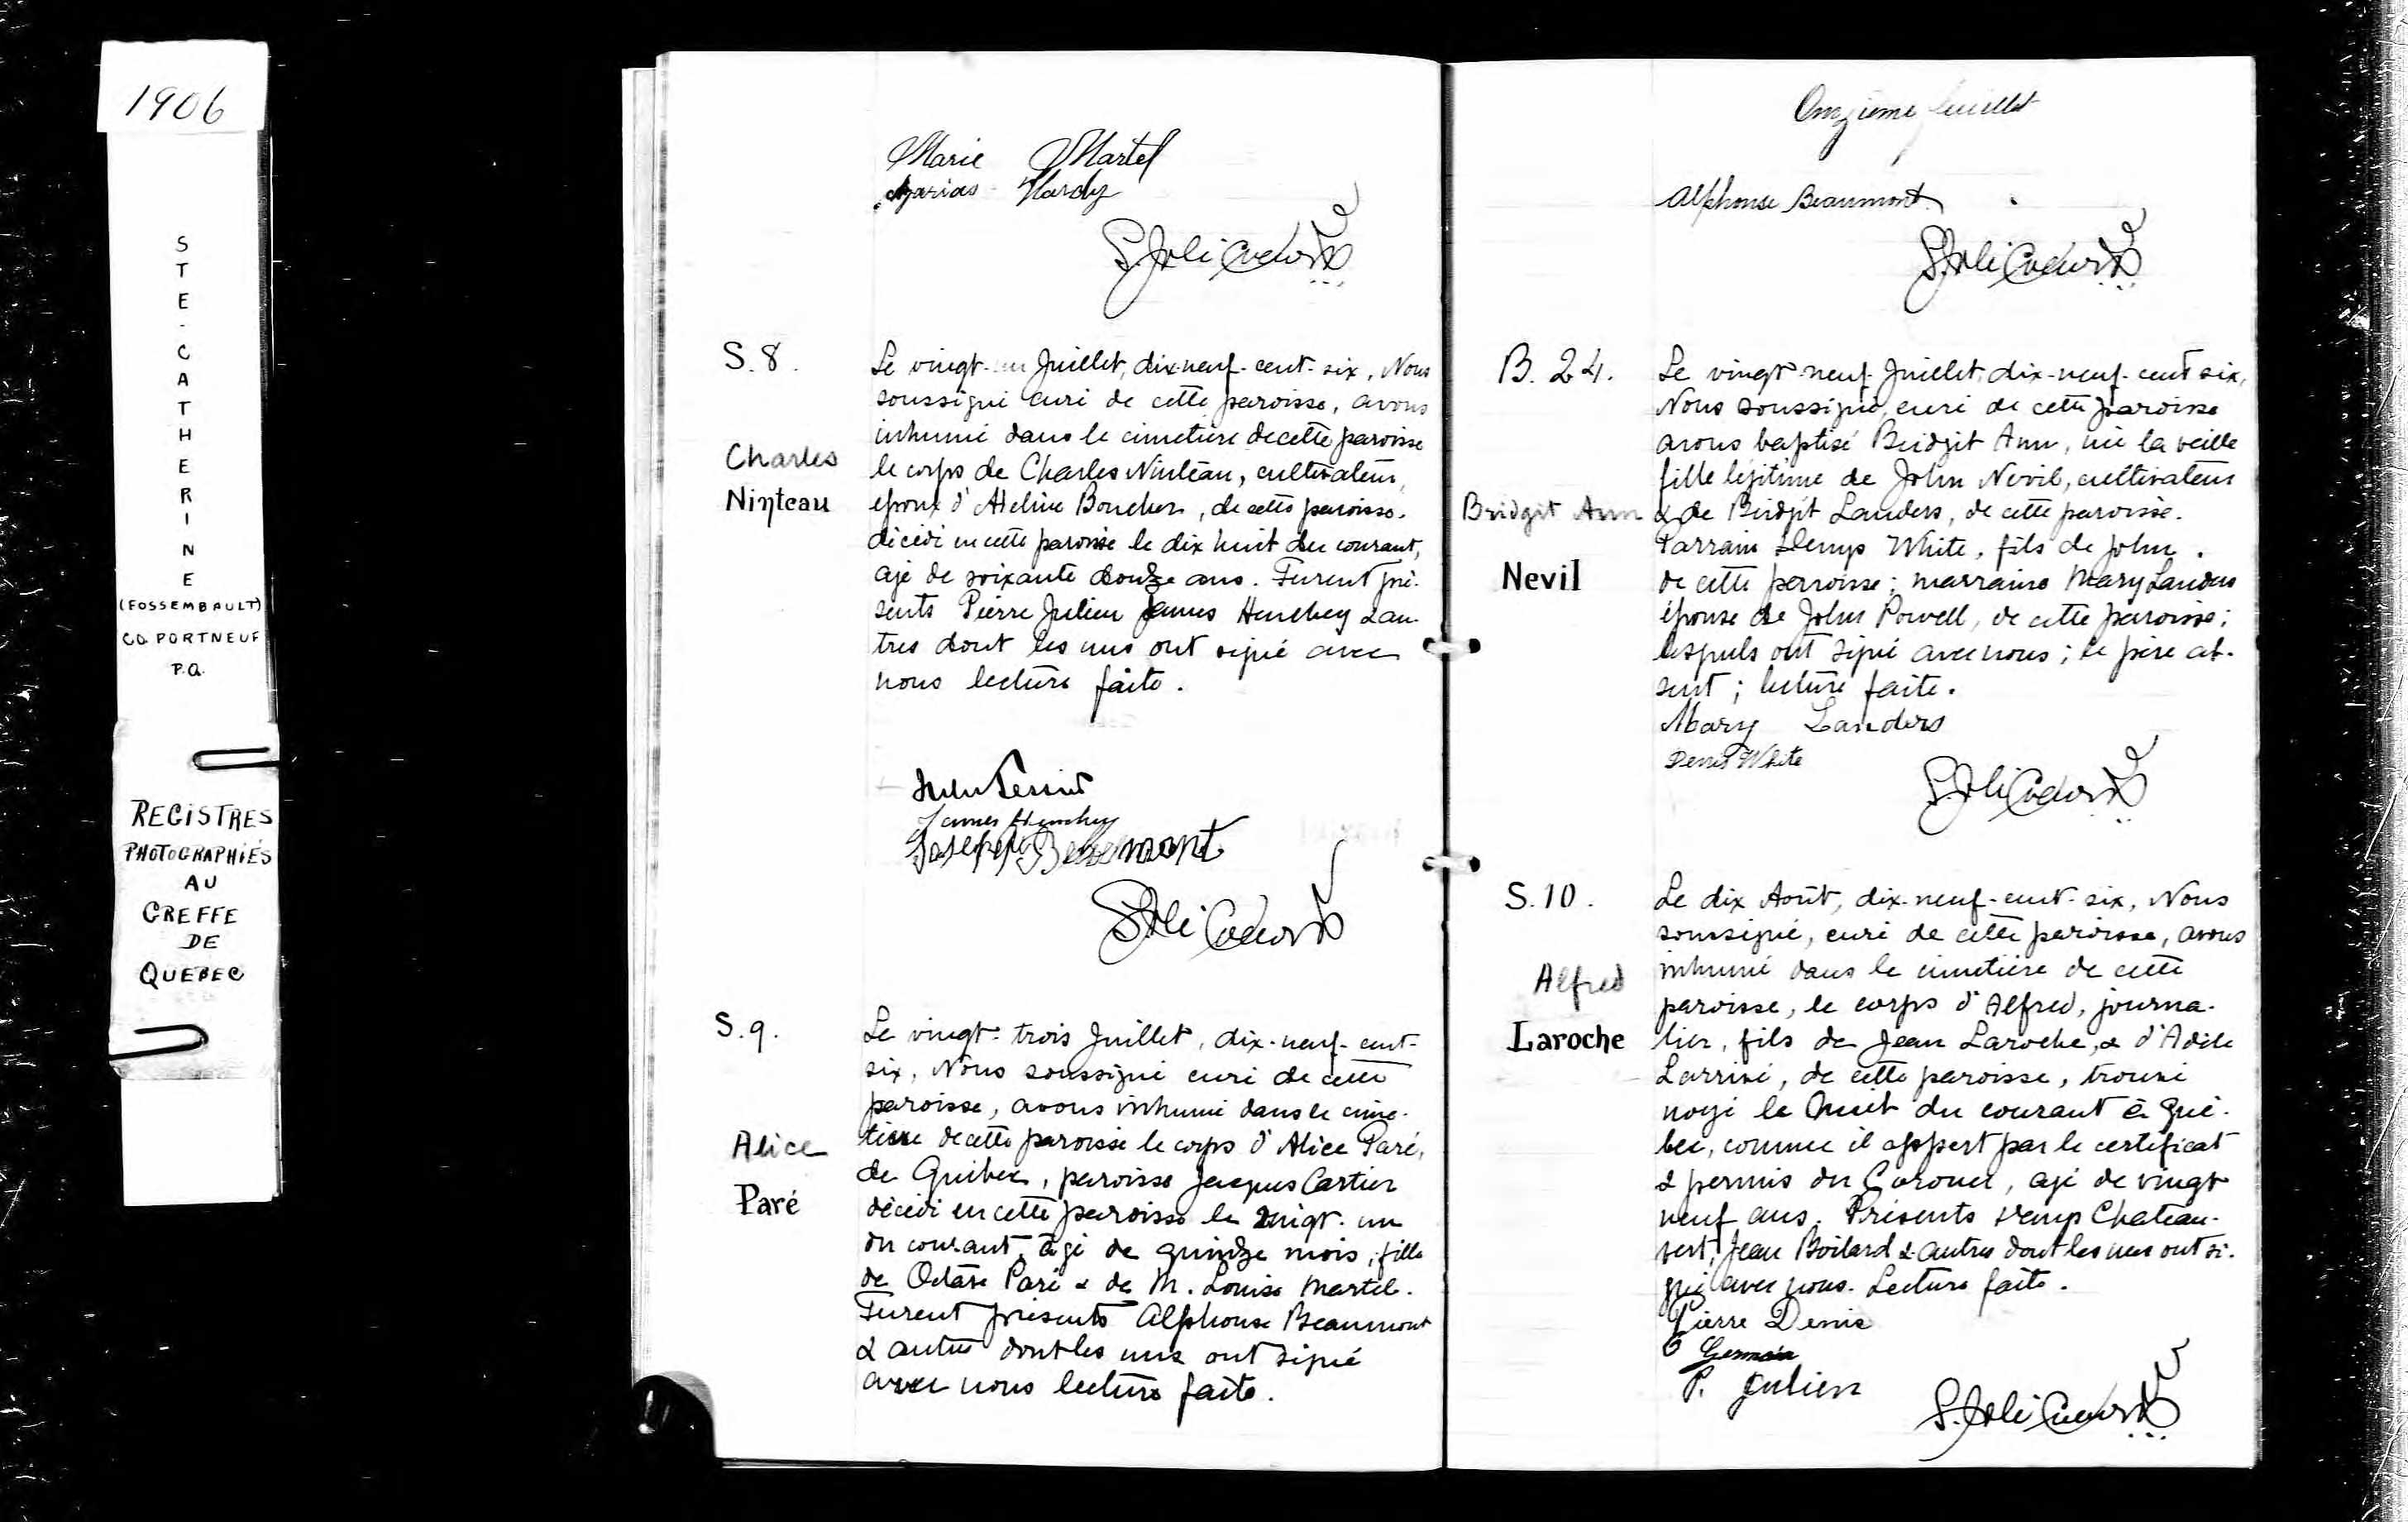 1906
STE-CATHERINE
(FOSSEMBAULT)
CO. PORTNEUF
P.Q.
REGISTRES
PHOTOGRAPHIÉS
AU
GREFFE
DE
QUEBEC
Marie Martel
Hardy
S. JoliCoeur
S. 8.
Charles
Ninteau
Le vingt-un Juillet, dix-neuf-cent-six, Nous
soussigné curé de cette paroisse, avons
inhumé dans le cimetière de cette paroisse
le corps de Charles Ninteau, cultivateur,
époux d'Adeline Boucher, de cette paroisse.
décédé en cette paroisse le dix huit du courant,
agé de soixante douze ans. Furent pré-
sents Pierre Julien James Henchey & au-
tres dont les uns ont signé avec
nous lecture faite.
James Henchey
Joseph Beaumont
S. JoliCoeur
S. 9.
Alice
Paré
Le vingt-trois Juillet, dix-neuf-cent-
six, Nous soussigné curé de cette
paroisse, avons inhumé dans le cime-
tière de cette paroisse le corps d'Alice Paré,
de Québec, paroisse Jacques Cartier
décédé en cette paroisse le vingt-un
du courant, âgé de quindze mois, fille
de Octave Paré & de M. Louise Martel.
Furent présents Alphonse Beaumont
& autres dont les uns ont signé
avec nous lecture faite.
Onzième feuillet
Alphonse Beaumont
S. JoliCoeur
B. 24.
Bridgit Ann
Nevil
Le vingt-neuf Juillet, dix-neuf-cent six,
Nous soussigné, curé de cette paroisse
avons baptisé Bridgit Ann, née la veille
fille légitime de John Nevil, cultivateur
& de Bridgit Landers, de cette paroisse.
Parrain Denys White, fils de John.
de cette paroisse; marraine Mary Landers
épouse de John Powell, de cette paroisse;
lesquels ont signé avec nous; le père ab-
sent; lecture faite.
Mary Landers
Denis White
S. JoliCoeur
S. 10.
Alfred
Laroche
Le dix Août, dix-neuf-cent-six, Nous
soussigné, curé de cette paroisse, avons
inhumé dans le cimetière de cette
paroisse, le corps d'Alfred, journa-
lier, fils de Jean Laroche, & d'Adèle
Larrivé, de cette paroisse, trouvé
noyé le huit du courant à Qué-
bec, comme il appert par le certificat
& permis du Coroner, agé de vingt
neuf ans. Présents Denys Chateau-
vert, Jean Boilard & autres dont les uns ont si-
gné avec nous. Lecture faite.
Pierre Denis
O Germain
P. Julien
S. JoliCoeur